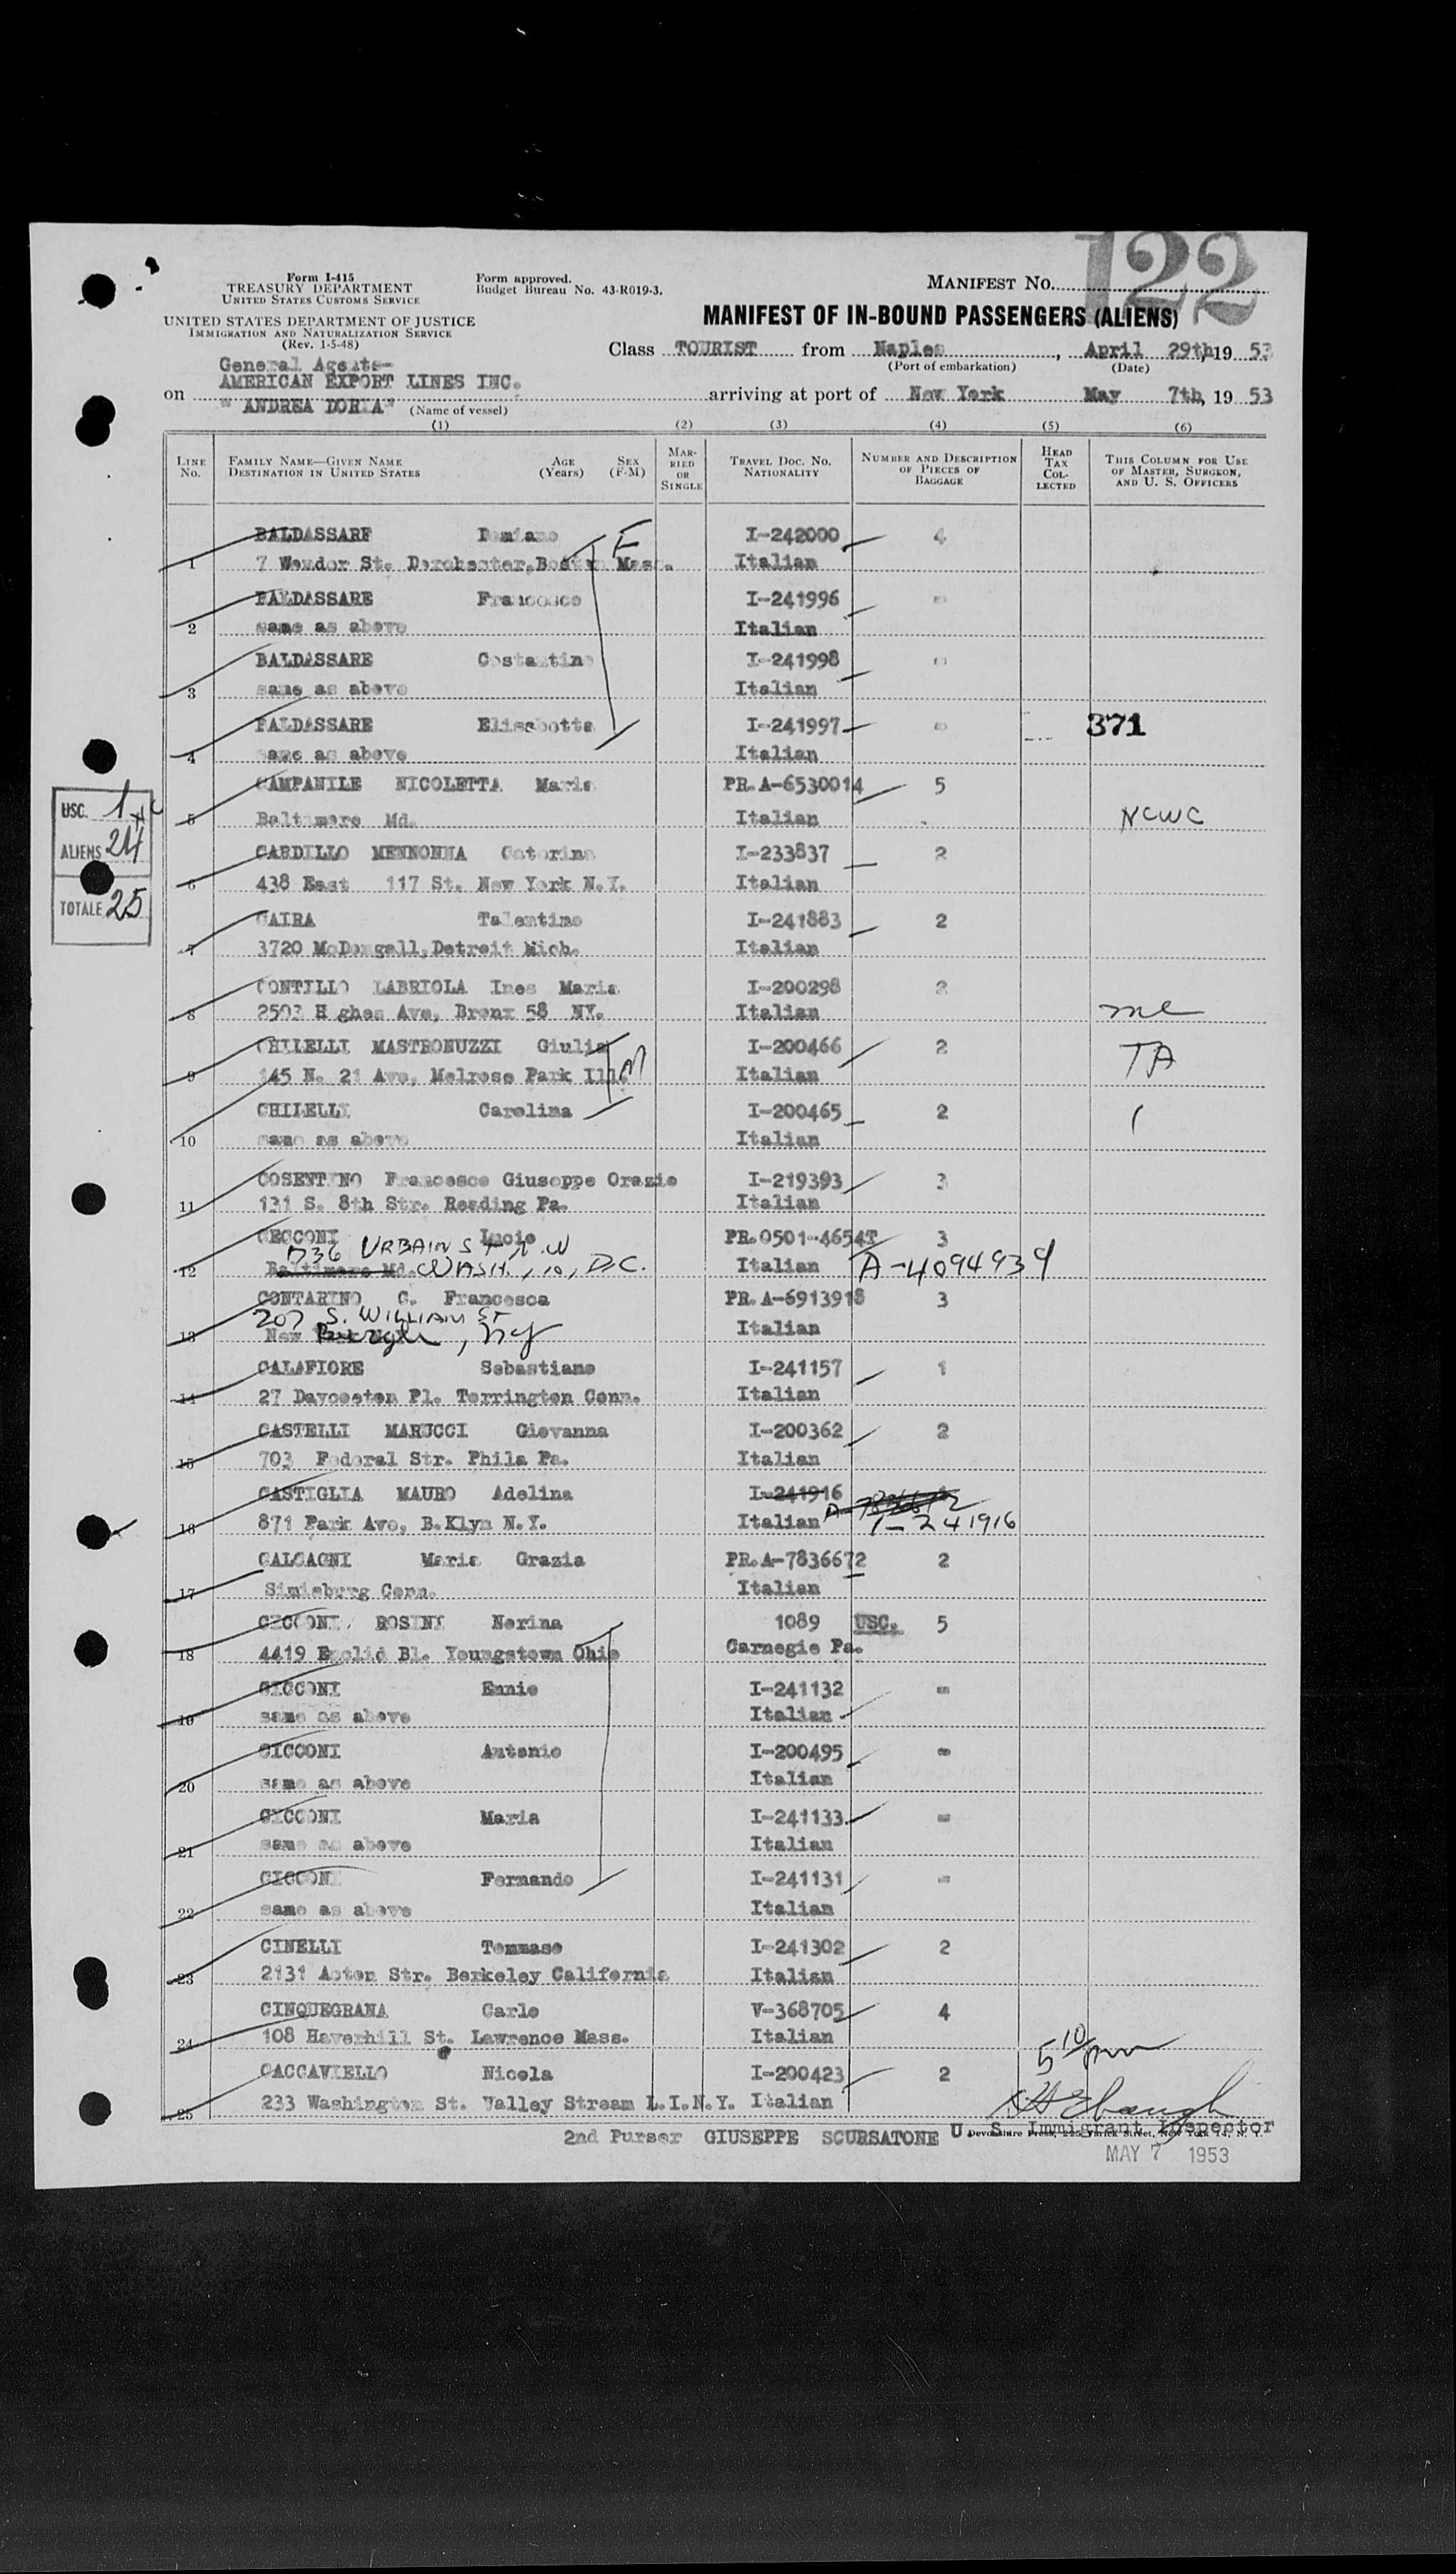 122
Form I-415
TREASURY DEPARTMENT
UNITED STATES CUSTOMS SERVICE
Form approved.
Budget Bureau No. 43-R019-3.
MANIFEST No.
UNITED STATES DEPARTMENT OF JUSTICE
IMMIGRATION AND NATURALIZATION SERVICE
(Rev. 1-5-48)
MANIFEST OF IN-BOUND PASSENGERS (ALIENS)
Class TOURIST from Naples, April 29th, 19 53
(Port of embarkation) (Date)
General Agents-
AMERICAN EXPORT LINES INC.
on "ANDREA DORIA" (Name of vessel) arriving at port of New York May 7th, 19 53
(1) (2) (3) (4) (5) (6)
LINE No. FAMILY NAME—GIVEN NAME DESTINATION IN UNITED STATES AGE (Years) SEX (F-M) MARRIED OR SINGLE TRAVEL DOC. No. NATIONALITY NUMBER AND DESCRIPTION OF PIECES OF BAGGAGE HEAD TAX COLLECTED THIS COLUMN FOR USE OF MASTER, SURGEON, AND U. S. OFFICERS
BALDASSARE Damiano F I-242000 4
1 7 Wendor St. Dorchester, Boston Mass. Italian
BALDASSARE Francesco I-241996 -
2 same as above Italian
BALDASSARE Costantino I-241998 -
3 same as above Italian
BALDASSARE Elisabetta I-241997 - 371
4 same as above Italian
CAMPANILE NICOLETTA Maria PR.A-6530014 5
5 Baltimore Md. Italian NCWC
USC. 1
ALIENS 24
TOTALE 25
CARDILLO MENNONNA Caterina I-233837 2
6 438 East 117 St. New York N.Y. Italian
CAIRA Talentino I-241883 2
7 3720 McDougall, Detroit Mich. Italian
CONTILLO LABRIOLA Ines Maria I-200298 2
8 2503 Hughes Ave, Bronx 58 NY. Italian
CHILELLI MASTRONUZZI Giulia I-200466 2 TA
9 145 N. 21 Ave, Melrose Park Ill. M Italian
CHILELLI Carolina I-200465 2
10 same as above Italian
COSENTINO Francesco Giuseppe Orazio I-219393 3
11 131 S. 8th Str. Reading Pa. Italian
CECCONI Lucio PR.0501-4654T 3
736 URBAIN ST N.W
12 Baltimore Md. WASH., 10, D.C. Italian A-4094939
CONTARINO C. Francesca PR. A-6913918 3
207 S. WILLIAM ST
13 New Burgh, NY Italian
CALAFIORE Sebastiano I-241157 1
14 27 Dayceeton Pl. Torrington Conn. Italian
CASTELLI MARUCCI Giovanna I-200362 2
15 703 Federal Str. Phila Pa. Italian
CASTIGLIA MAURO Adelina I-241916
16 871 Park Ave, B.Klyn N.Y. Italian I-241916
CALCAGNI Maria Grazia PR.A-7836672 2
17 Simisburg Conn. Italian
CICCONI ROSINI Nerina 1089 USC. 5
18 4419 Euclid Bl. Youngstown Ohio Carnegie Pa.
CICCONI Ennio I-241132 -
19 same as above Italian
CICCONI Antonio I-200495 -
20 same as above Italian
CICCONI Maria I-241133 -
21 same as above Italian
CICCONI Fernando I-241131 -
22 same as above Italian
CINELLI Tommaso I-241302 2
23 2131 Acton Str. Berkeley California Italian
CINQUEGRANA Carlo V-368705 4
24 108 Haverhill St. Lawrence Mass. Italian
5 10 pm
CACCAVIELLO Nicola I-200423 2
25 233 Washington St. Valley Stream L.I.N.Y. Italian
2nd Purser GIUSEPPE SCURSATONE U. S. Immigrant Inspector
MAY 7 1953